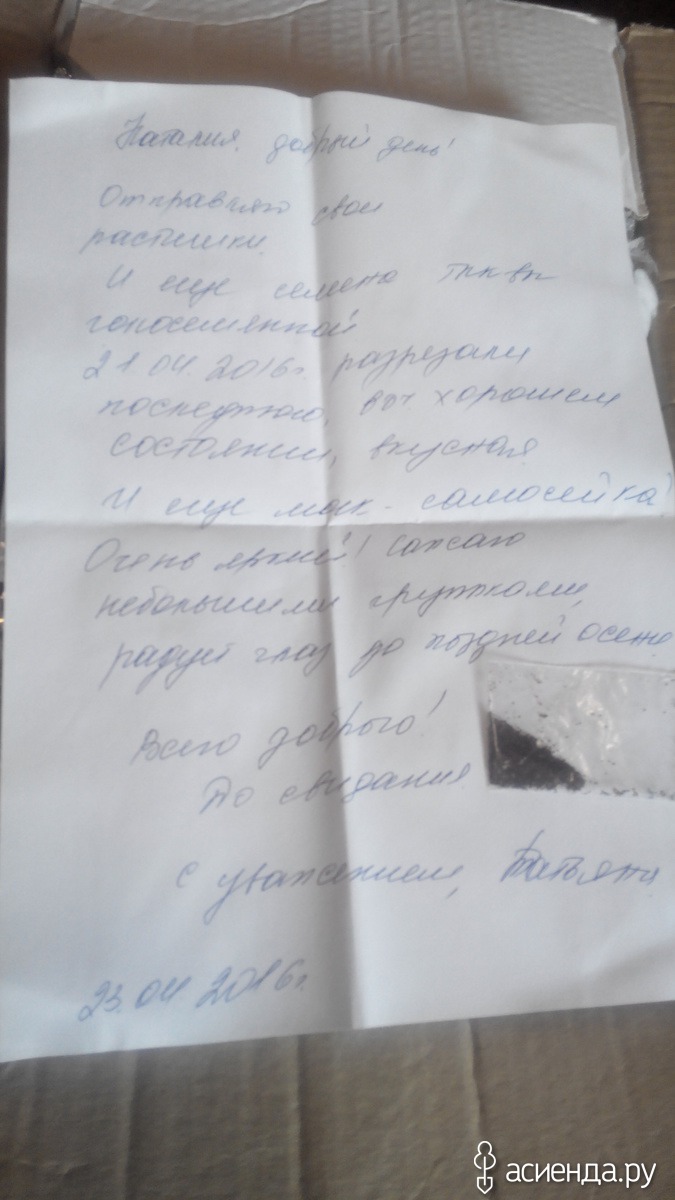 Наталия, добрый день!
Отправляю свои
растишки.
И еще семена тыквы
голосемянной
21.04.2016г. разрезали
последнюю, в хорошем
состоянии, вкусная
И еще мак - самосейка!
Очень яркий! Сажаю
небольшими группками,
радует глаз до поздней осени
Всего доброго!
До свидания
С уважением, Татьяна
23.04 2016г.
асиенда.ру